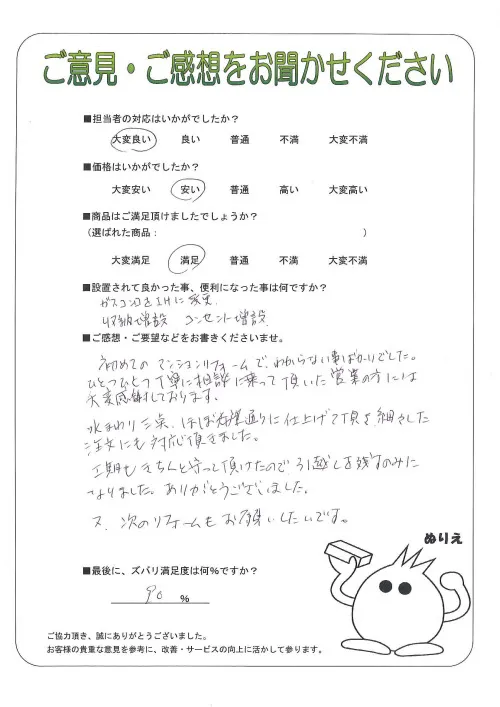 ご意見・ご感想をお聞かせください
■担当者の対応はいかがでしたか?
大変良い 良い 普通 不満 大変不満
■価格はいかがでしたか?
大変安い 安い 普通 高い 大変高い
■商品はご満足頂けましたでしょうか?
(選ばれた商品: )
大変満足 満足 普通 不満 大変不満
■設置されて良かった事、便利になった事は何ですか?
ガスコンロをIHに変更
収納増設 コンセント増設
■ご感想・ご要望などをお書きくださいませ。
初めてのマンションリフォームで、わからない事ばかりでした。
ひとつひとつ丁寧に相談に乗って頂いた営業の方には
大変感謝しております。
水まわり三点、ほぼ希望通りに仕上げて頂き、細々した
注文にも対応頂きました。
工期もきちんと守って頂けたので引越しを残すのみに
なりました。ありがとうございました。
又、次のリフォームもお願いしたいです。
ぬりえ
■最後に、ズバリ満足度は何%ですか?
90 %
ご協力頂き、誠にありがとうございました。
お客様の貴重な意見を参考に、改善・サービスの向上に活かして参ります。